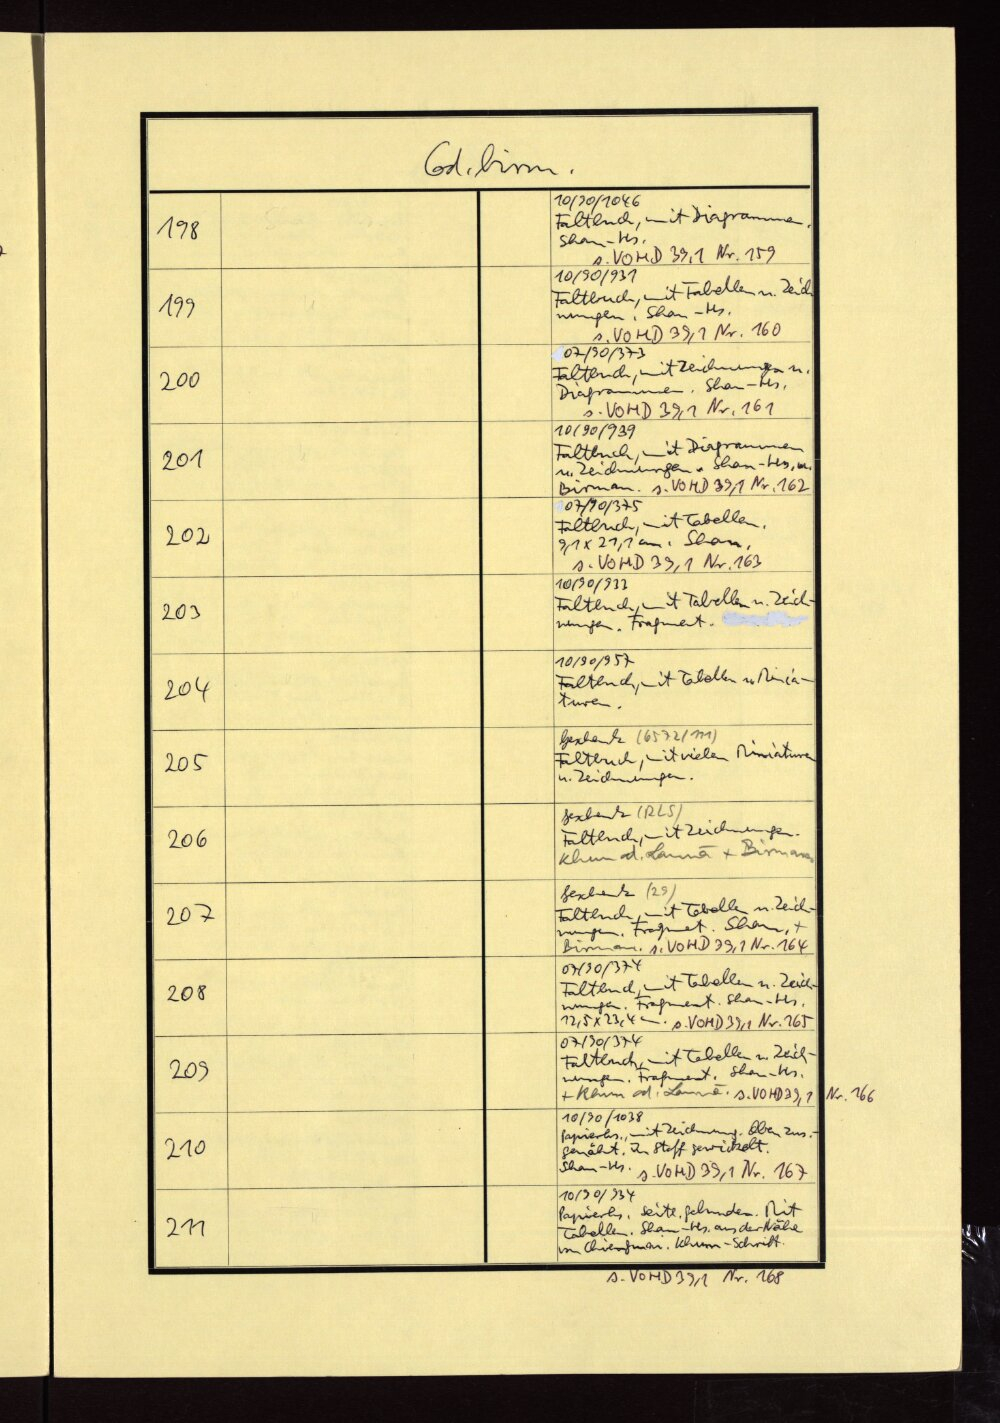 Cod. birm.
198
10/90/1046
Faltbuch, mit Diagrammen.
Shan-Hs.
s. VOHD 39,1 Nr. 159
199
10/90/931
Faltbuch, mit Tabellen u. Zeich-
nungen. Shan-Hs.
s. VOHD 39,1 Nr. 160
200
07/90/373
Faltbuch, mit Zeichnungen u.
Diagrammen. Shan-Hs.
s. VOHD 39,1 Nr. 161
201
10/90/939
Faltbuch, mit Diagrammen
u. Zeichnungen. Shan-Hs. u.
Birman. s. VOHD 39,1 Nr. 162
202
07/90/375
Faltbuch, mit Tabellen.
9,1 x 21,1 cm. Shan.
s. VOHD 39,1 Nr. 163
203
10/90/933
Faltbuch, mit Tabellen u. Zeich-
nungen. Fragment.
204
10/90/957
Faltbuch, mit Tabellen u. Minia-
turen.
205
Geschenk (6572/111)
Faltbuch, mit vielen Miniaturen
u. Zeichnungen.
206
Geschenk (RLS)
Faltbuch, mit Zeichnungen.
Khün od. Lanna + Birman
207
Geschenk (29)
Faltbuch, mit Tabellen u. Zeich-
nungen. Fragment. Shan, +
Birman. s. VOHD 39,1 Nr. 164
208
07/90/374
Faltbuch, mit Tabellen u. Zeich-
nungen. Fragment. Shan-Hs.
12,5 x 23,4 cm. s. VOHD 39,1 Nr. 165
209
07/90/374
Faltbuch, mit Tabellen u. Zeich-
nungen. Fragment. Shan-Hs.
+ Khün od. Lanna. s. VOHD 39,1 Nr. 166
210
10/90/1038
Papierhs., mit Zeichnung. Oben zus.-
genäht. In Stoff gewickelt.
Shan-Hs. s. VOHD 39,1 Nr. 167
211
10/90/934
Papierhs. Seitl. gebunden. Mit
Tabellen. Shan-Hs. aus der Nähe
von Chiengmai. Khün-Schrift.
s. VOHD 39,1 Nr. 168